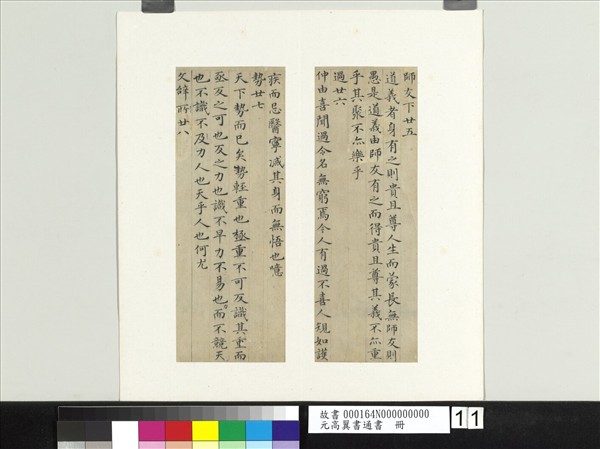 師友下廿五
道義者身有之則貴且尊人生而蒙長無師友則
愚是道義由師友有之而得貴且尊其義不亦重
乎其聚不亦樂乎
過廿六
仲由喜聞過令名無窮焉今人有過不喜人規如護
疾而忌醫寧滅其身而無悟也噫
勢廿七
天下勢而已矣勢輕重也極重不可反識其重而
亟反之可也反之力也識不早力不易也而不競天
也不識不及力人也天乎人也何尤
文辭所廿八
故書 000164N000000000
元高翼書通書 冊
11